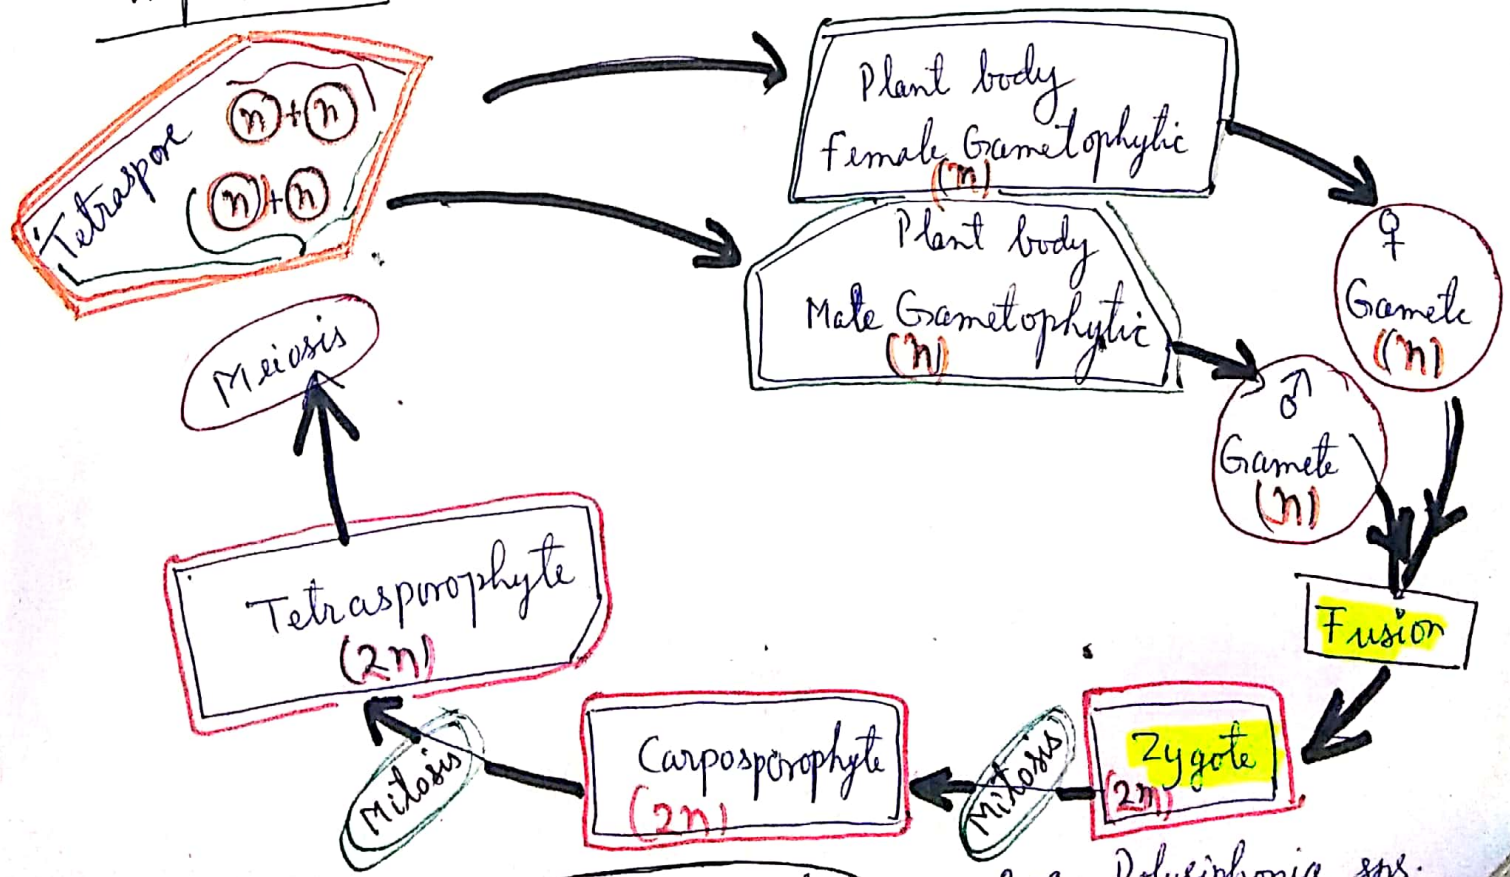 Tetraspore
(n)+(n)
(n)+(n)
Plant body
Female Gametophytic
(n)
Plant body
Male Gametophytic
(n)
♀
Gamete
(n)
♂
Gamete
(n)
Fusion
Zygote
(2n)
Mitosis
Carposporophyte
(2n)
Mitosis
Tetrasporophyte
(2n)
Meiosis
Polysiphonia sps.